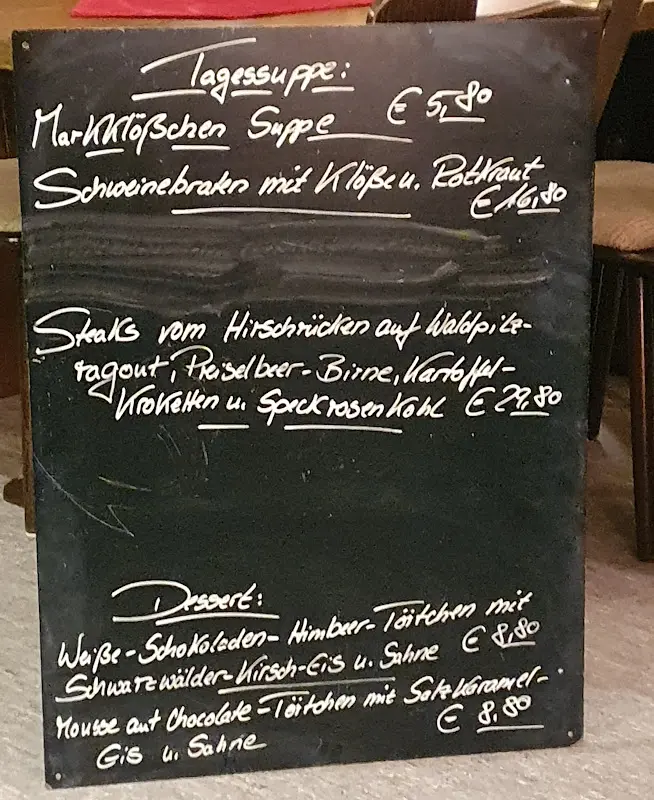 Tagessuppe:
Markklößchen Suppe € 5,80
Schweinebraten mit Klöße u. Rotkraut
€ 16,80
Steaks vom Hirschrücken auf Waldpilz-
ragout, Preiselbeer-Birne, Kartoffel-
Kroketten u. Speckrosenkohl € 29,80
Dessert:
Weiße-Schokoladen-Himbeer-Törtchen mit
Schwarzwälder-Kirsch-Eis u. Sahne € 8,80
Mousse aut Chocolate-Törtchen mit Salzkaramel-
Eis u. Sahne € 8,80